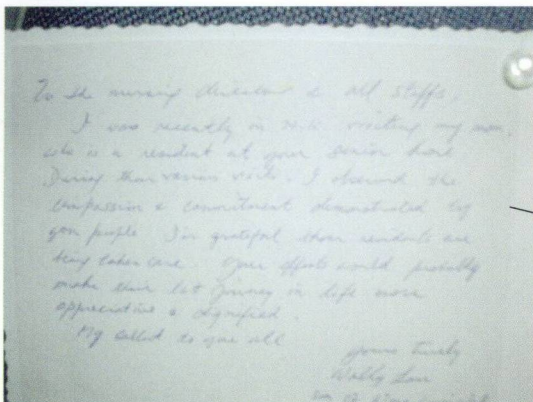 To the nursing director & all staffs,
I was recently in visiting my mom,
who is a resident at your senior home
During various visits, I observed the
compassion & commitment demonstrated by
your people I'm grateful residents are
being taken care. Your efforts would probably
make their last journey in life more
appreciative & dignified.
My to you all
yours truly
Wally